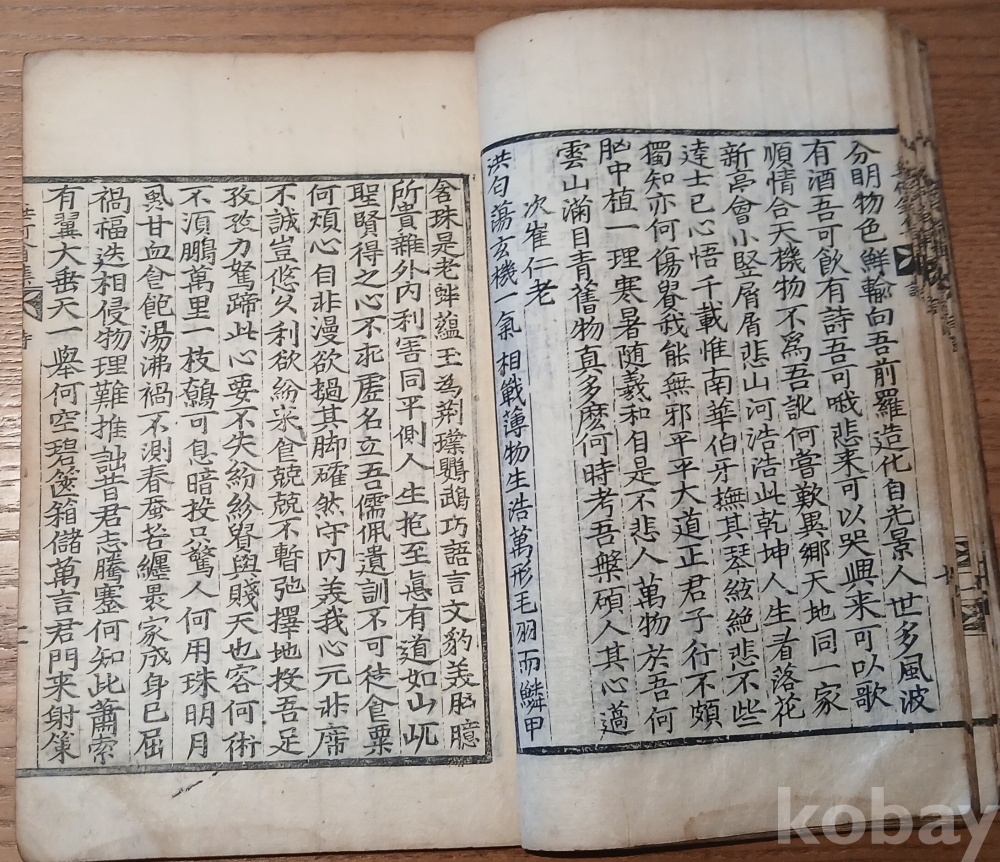 分明物色鮮輸向吾前羅造化自光景人世多風波
有酒吾可飮有詩吾可哦悲来可以哭興来可以歌
順情合天機物不爲吾訛何嘗歎異鄉天地同一家
新亭會小竪屑屑悲山河浩浩此乾坤人生看落花
達士已心悟千載惟南華伯牙撫其琴絃絶悲不些
獨知亦何傷譽我能無邪平平大道正君子行不頗
胸中植一理寒暑随羲和自是不悲人萬物於吾何
雲山滿目青舊物真多麽何時考吾槃碩人其心薖
次崔仁老
洪匀蕩玄機一氣相戰薄物生浩萬形毛羽而鱗甲
含珠是老蚌蘊玉為荊璞鸚鵡巧語言文豹美胸臆
所貴雖外内利害同平側人生抱至眞有道如山屹
聖賢得之心不求虛名立吾儒佩遺訓不可徒食粟
何煩心自非漫欲其脚確然守内美我心元非席
不誠豈悠久利欲紛米食兢兢不暫弛擇地投吾足
孜孜力駑蹄此心要不失紛紛譽與賤天也容何術
不湏鵬萬里一枝鷦可息暗投只驚人何用珠明月
虱甘血食飽湯沸禍不測春蚕苦纏褁家成身已屈
禍福迭相侵物理難推詘昔君志騰騫何知此蕭索
有翼大垂天一舉何空碧篋箱儲萬言君門来射策
kobay